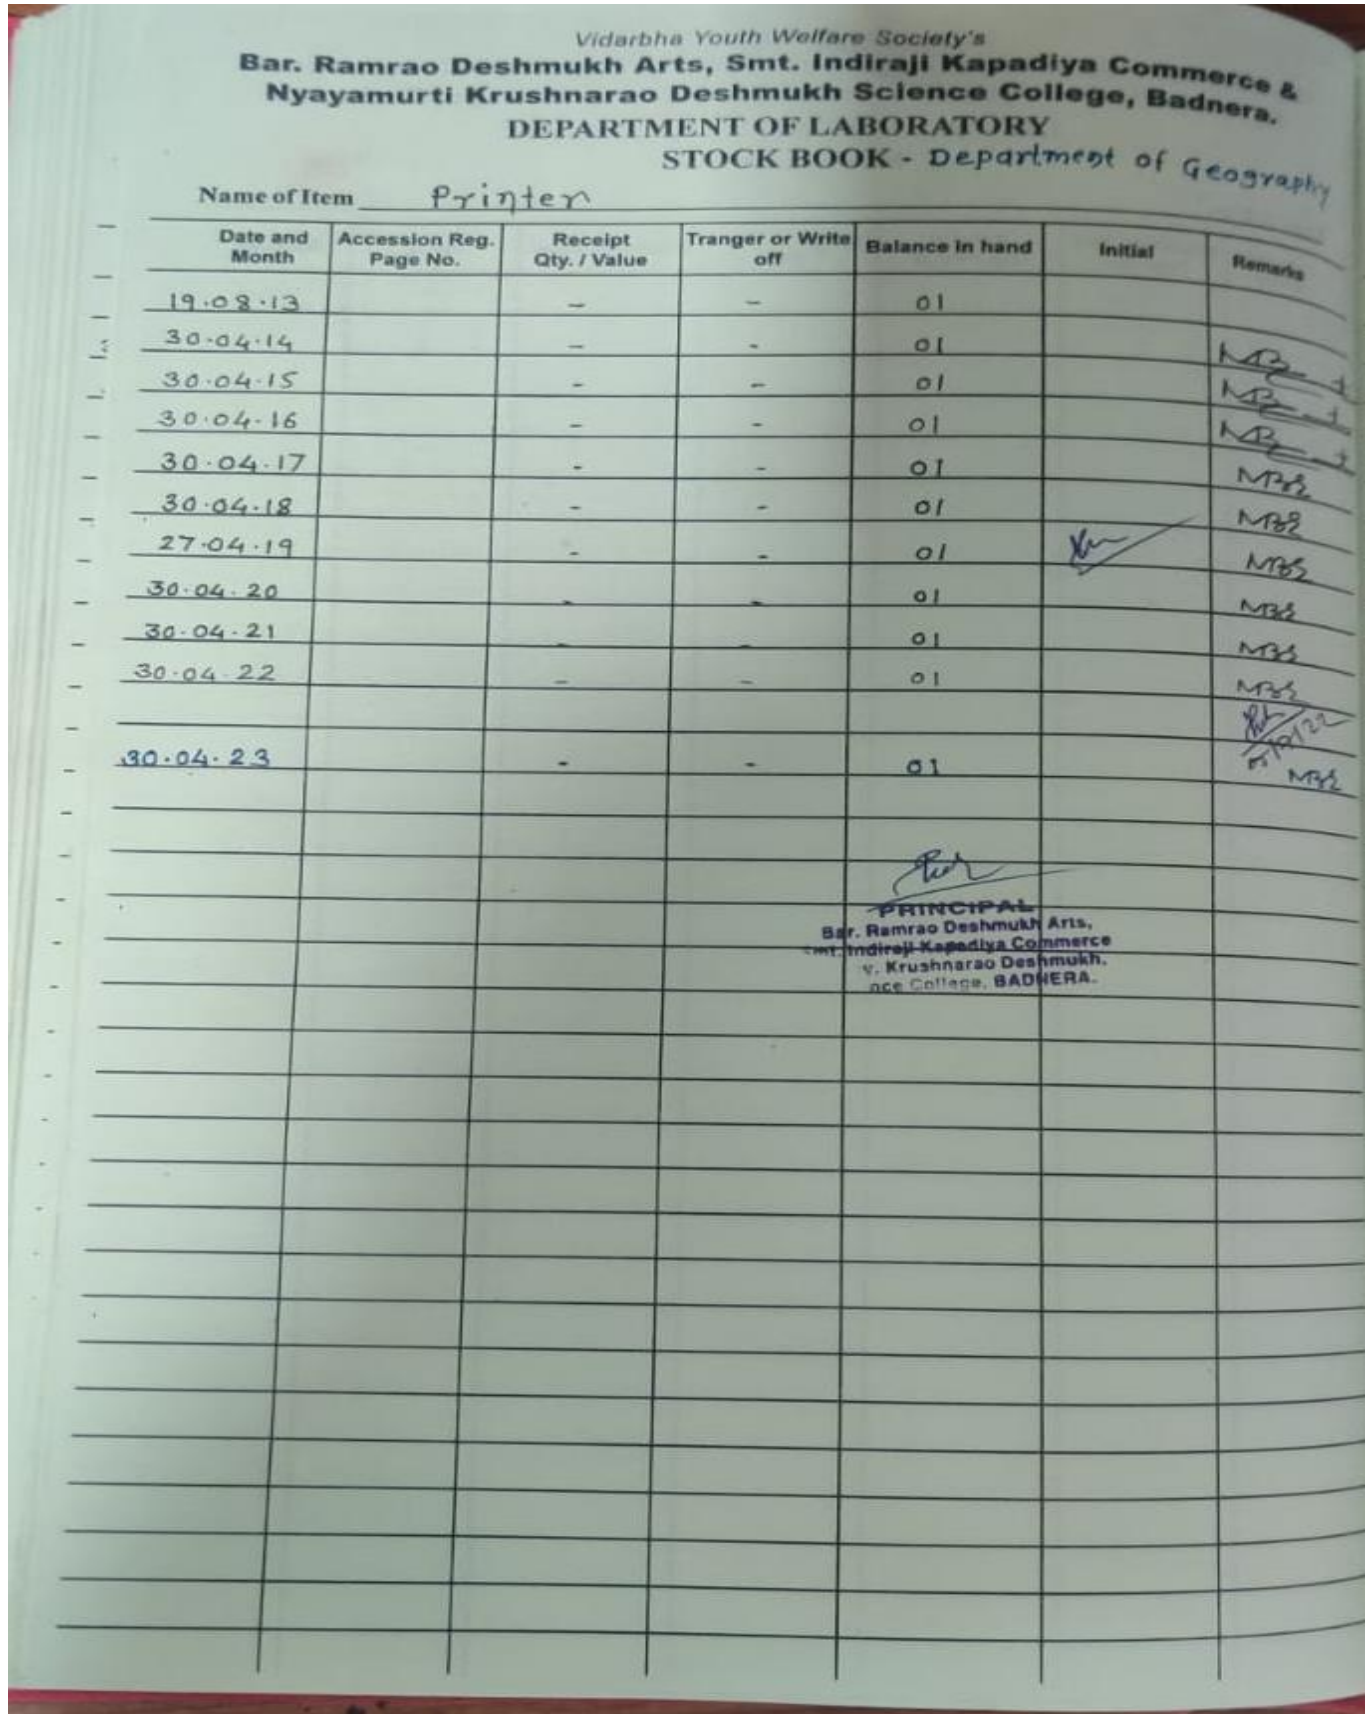 Vidarbha Youth Welfare Society's
Bar. Ramrao Deshmukh Arts, Smt. Indiraji Kapadiya Commerce &
Nyayamurti Krushnarao Deshmukh Science College, Badnera.
DEPARTMENT OF LABORATORY
STOCK BOOK - Department of Geography
Name of Item Printer
Date and Month Accession Reg. Page No. Receipt Qty. / Value Tranger or Write off Balance in hand Initial Remarks
19.08.13 - - 01
30.04.14 - - 01
30.04.15 - - 01
30.04.16 - - 01
30.04.17 - - 01
30.04.18 - - 01
27.04.19 - - 01
30.04.20 - - 01
30.04.21 - - 01
30.04.22 - - 01
30.04.23 - - 01
PRINCIPAL
Bar. Ramrao Deshmukh Arts,
Smt. Indiraji Kapadiya Commerce
v. Krushnarao Deshmukh.
nce College, BADNERA.